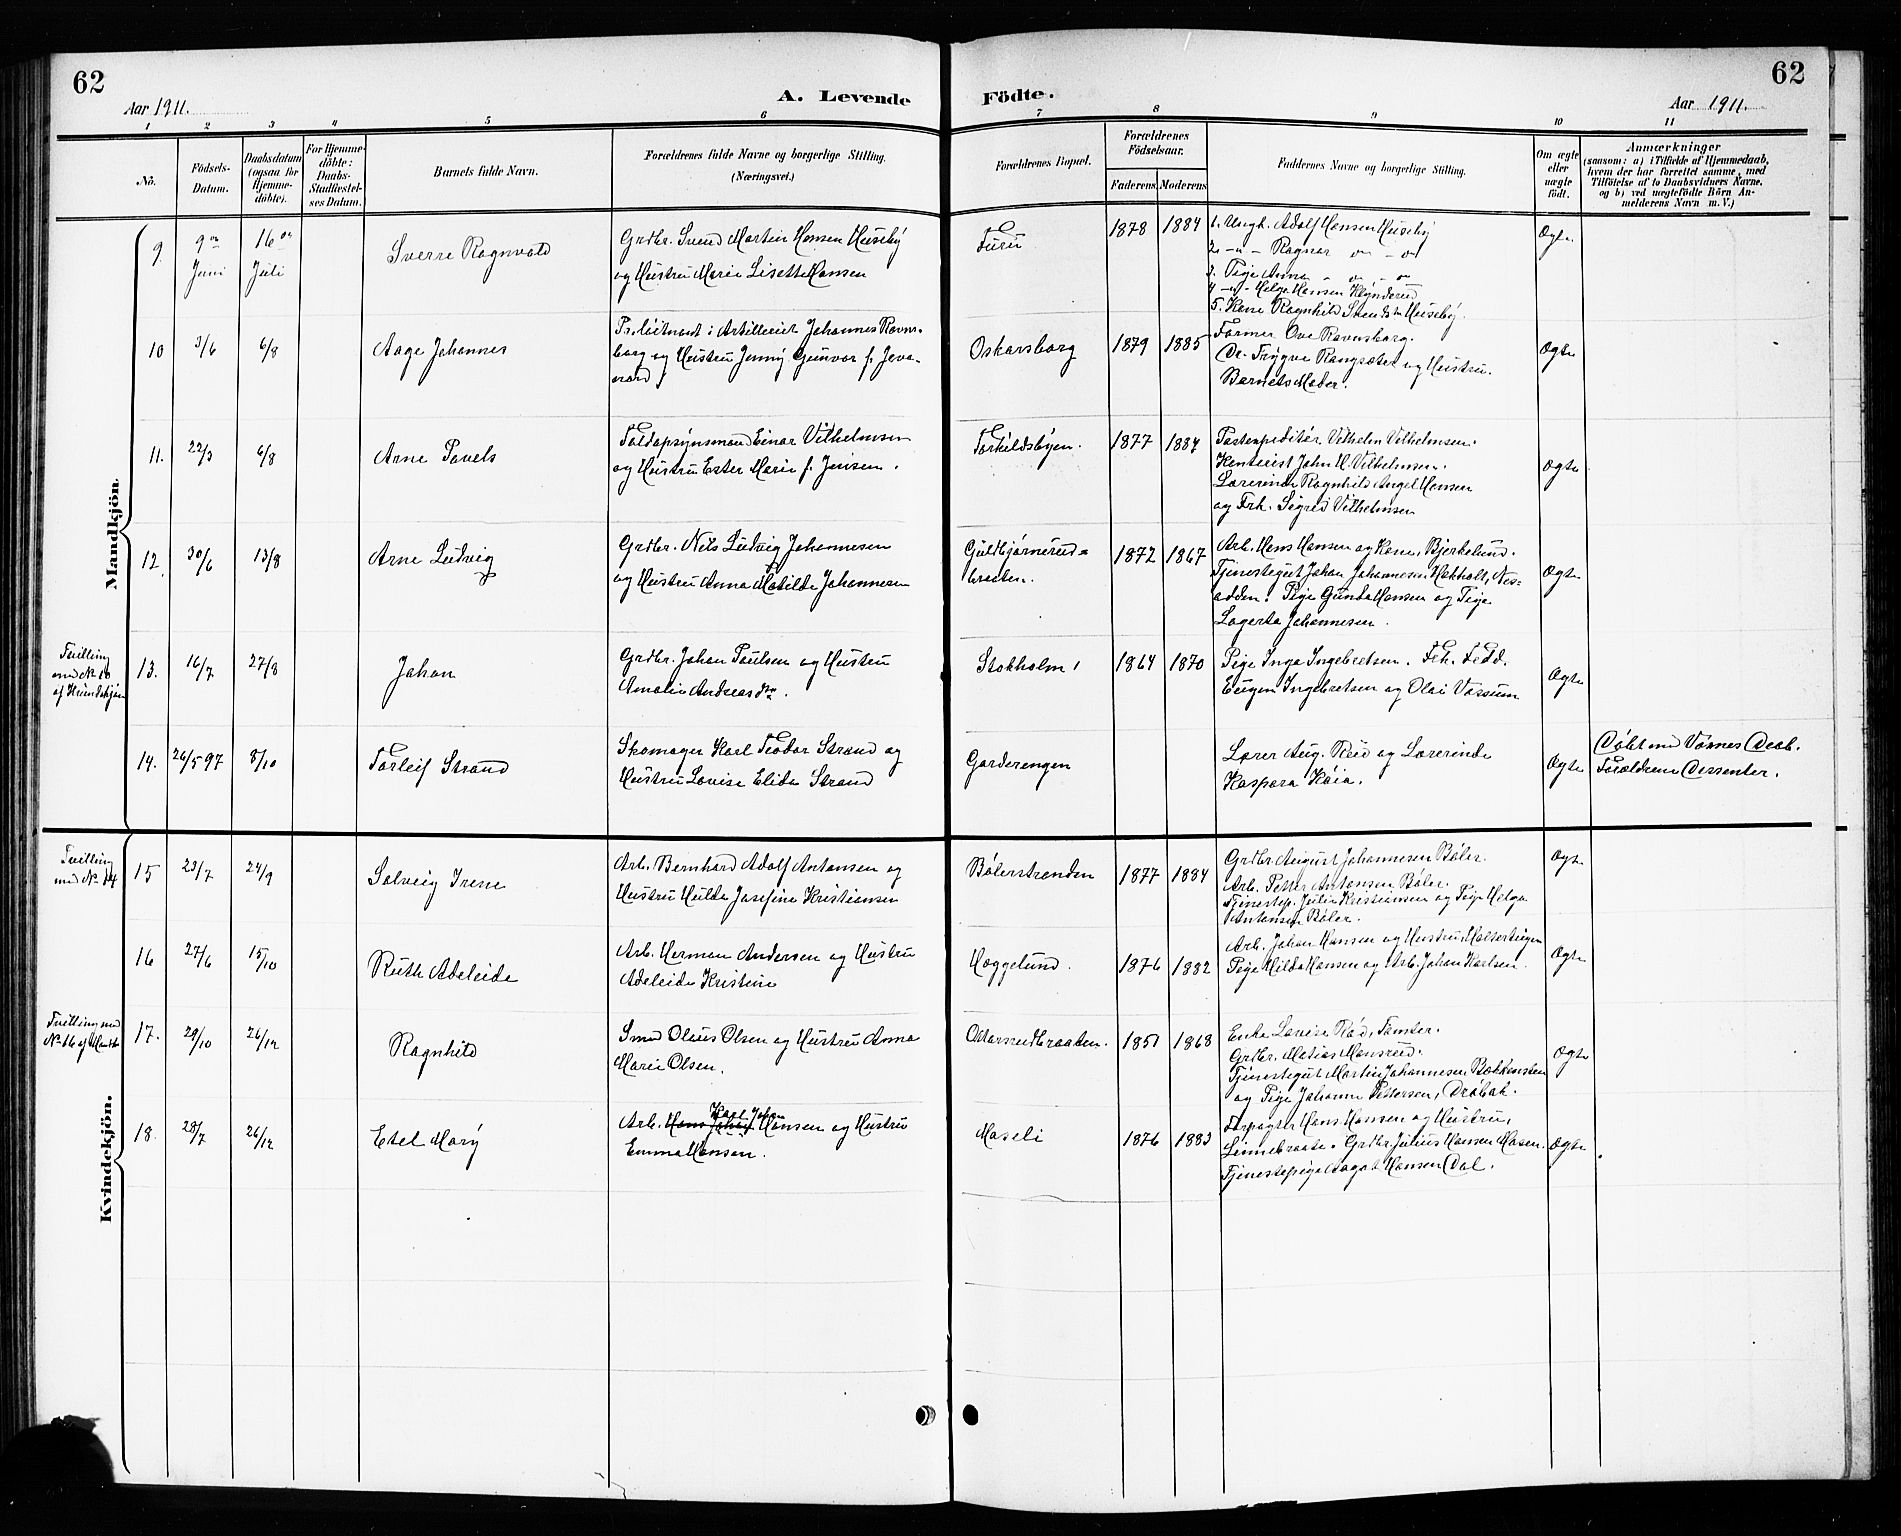 62
Aar 1911.
A. Levende
Födte.
62
Aar 1911.
1 2 3 4 5 6 7 8 9 10 11
No.
Födsels-Datum.
Daabsdatum (ogsaa for Hjemme-döbte).
For Hjemme-döbte: Daabs-Stadfæstel-ses Datum.
Barnets fulde Navn.
Forældrenes fulde Navne og borgerlige Stilling.
(Næringsvei.)
Forældrenes Bopæl.
Forældrenes Födselsaar.
Faderens Moderens
Faddernes Navne og borgerlige Stilling.
Om ægte eller uægte født.
Anmærkninger
(saasom: a) i Tilfælde af Hjemmedaab, hvem der har forrettet samme, med Tilföielse af to Daabsvidners Navne, og b) ved uægtefödte Börn An-melderens Navn m. V.)
Mandkjön.
9 9de Juni 16de Juli
Sverre Ragnvald
Grdbr. Svend Martin Hansen Huseby
og Hustru Marie Lisette Hansen
Furu
1878 1884
1. Ungk. Adolf Hansen Huseby
2. -"- Ragnar
3. Pige Anna
4 -"- Helga Hansen
5. Kone Ragnhild Huseby.
Ægte
10 3/6 6/8
Aage Johannes
Pr. löitnant i Artilleriet Johannes Ravns-
borg og Hustru Jenny Gunvor f.
Oskarsborg
1879 1885
Farmer Ove Ravnsborg.
Dr. Trygve og Hustru.
Barnets Moder.
Ægte
11. 22/3 6/8
Arne Pavels
Toldopsynsmand Einar Vilhelmsen
og Hustru Ester Marie f. Jensen.
Torkildsbyen.
1877 1884
Postexpeditör Vilhelm Vilhelmsen.
Kontorist John H. Vilhelmsen.
Lærerinde Ragnhild Angel Hansen
og Frk. Sigrid Vilhelmsen
Ægte
12. 30/6 13/8
Arne Ludvig
Grdbr. Nils Ludvig Johannesen
og Hustru Anna Matilde Johannesen
Guldbjørnerud=
braaten.
1872 1867
Arb. Hans Hansen og Kone, Bjerkelund.
Tjenestegut Johan Johannesen Nes-
odden. Pige Gunda Hansen og Pige
Lagerta Johannesen.
Ægte
Tvilling
med No 16
af Kvindekjön
13. 16/7 27/8
Johan
Grdbr. Johan Paulsen og Hustru
Amalie Andreasdtr.
Stokholm
1864 1870
Pige Inga Ingebretsen. Frk.
Eugen Ingebretsen og Olai Vassum
Ægte
14. 26/5 97 8/10
Torleif Strand
Skomager Karl Teodor Strand og
Hustru Lovise Elida Strand
Garderengen
Lærer Aug. Ruud og Lærerinde
Kaspara
Ægte
Døbt ved Voxnes Daab.
Forældrene Dissenter.
Kvindekjön.
Tvilling
med No 14
15 23/7 24/9
Solveig Irene
Arb. Bernhard Adolf Antonsen og
Hustru Hulda Josefine Kristiansen
Bølerstranden
1877 1884
Grdbr. August Johannesen Bøler.
Arb. Petter Antonsen Bøler.
Tjenestep. Julie Kristiansen og Pige Helga
Antonsen Bøler.
Ægte
16 27/6 15/10
Ruth Adeleide
Arb. Herman Andersen og Hustru
Adeleide Kristine
Haggelund.
1876 1882
Arb. Johan Hansen og Hustru,
Pige Hilda Hansen og Arb. Johan Karlsen.
Ægte
Tvilling med
17. 29/10 26/12
Ragnhild
Smed Olaus Olsen og Hustru Anna
Marie Olsen.
1851 1868
Enke Lovise Rød, Tomter.
Grdbr. Matias
Tjenestegut Martin Johannesen
og Pige Johanne Pettersen, Drøbak.
Ægte
18. 28/7 26/12
Etel Mary
Arb. Karl Johan Hansen og Hustru
Emma Hansen.
Moseli
1876 1883
Forpagter Hans Hansen og Hustru,
Linnebraate. Grdbr. Julius Hansen Mosen.
Tjenestepige Aagot Hansen Dal.
Ægte